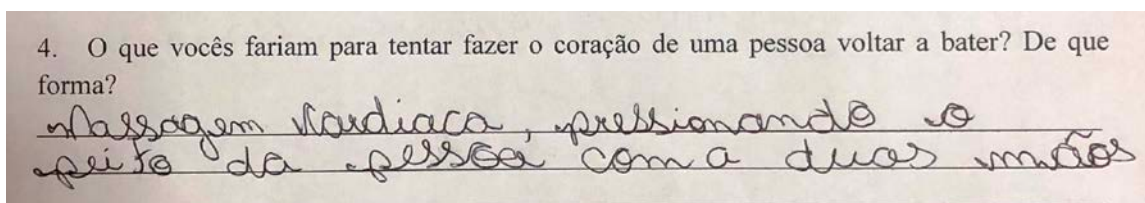 4. O que vocês fariam para tentar fazer o coração de uma pessoa voltar a bater? De que
forma?
Massagem Cardiaca, pressionando o
peito da pessoa com a duas mãos